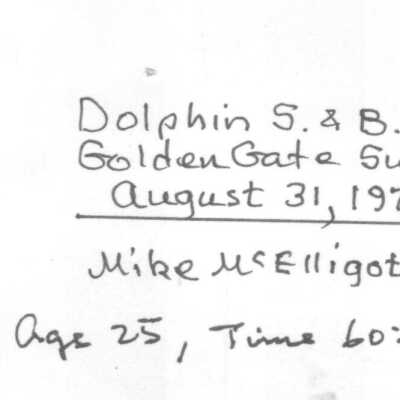 Dolphin S. & B.
Golden Gate Su
August 31, 197
Mike McElligot
Age 25, Time 60: